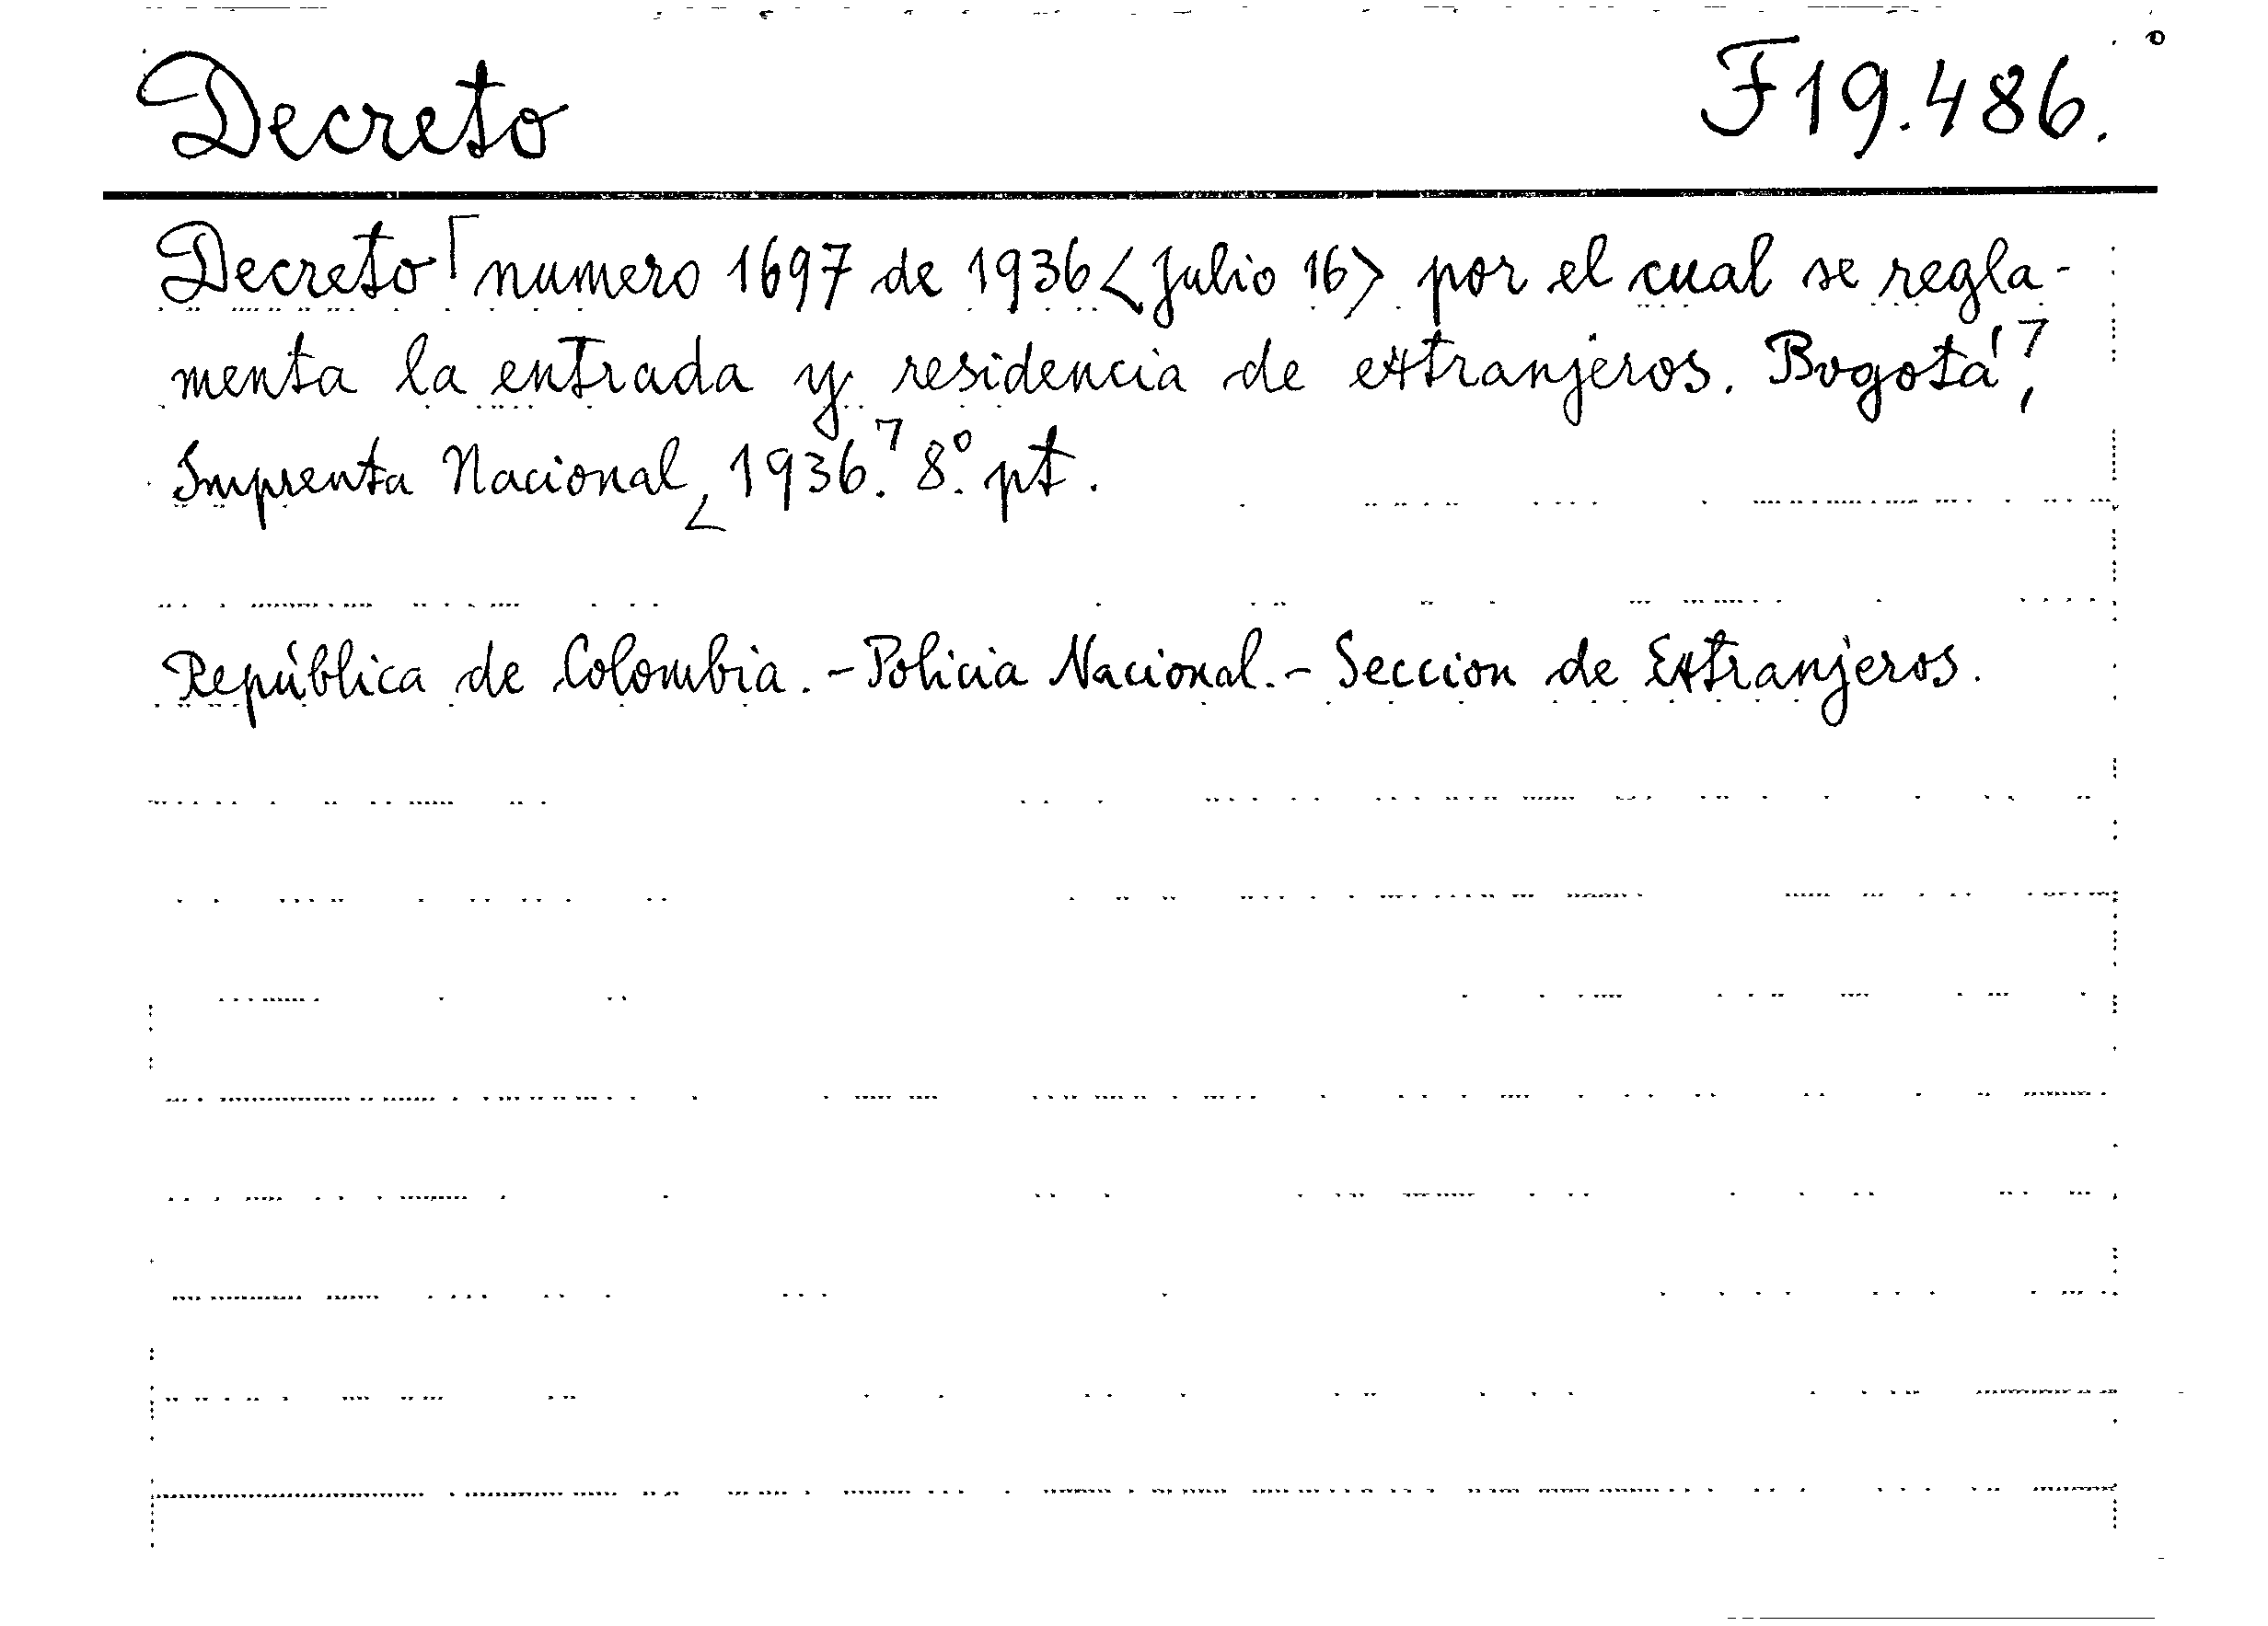 Decreto F19.486.
Decreto numero 1697 de 1936 <Julio 16> por el cual se regla-
menta la entrada y residencia de extranjeros. Bogotá,
Imprenta Nacional, 1936. 8º. pt.
República de Colombia. - Policia Nacional. - Seccion de Extranjeros.